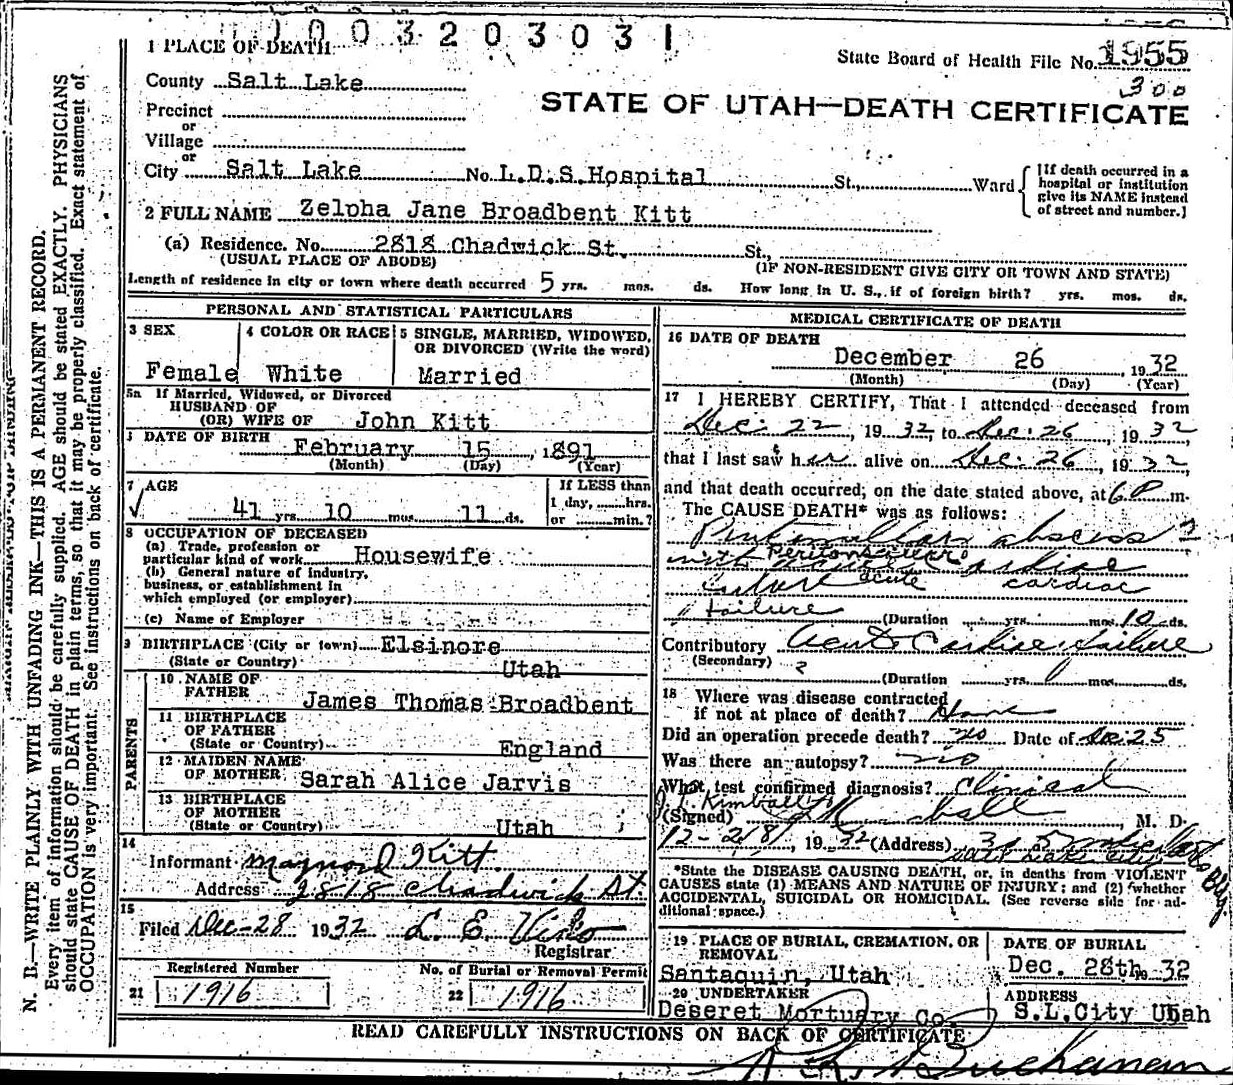 1003203031
1 PLACE OF DEATH
State Board of Health File No. 1955
300
County Salt Lake
STATE OF UTAH—DEATH CERTIFICATE
Precinct
or
Village
or
City Salt Lake No. L.D.S. Hospital St., Ward
[If death occurred in a
hospital or institution
give its NAME instead
of street and number.]
2 FULL NAME Zelpha Jane Broadbent Kitt
(a) Residence. No. 2818 Chadwick St. St.,
(USUAL PLACE OF ABODE) (IF NON-RESIDENT GIVE CITY OR TOWN AND STATE)
Length of residence in city or town where death occurred 5 yrs. mos. ds. How long in U. S., if of foreign birth? yrs. mos. ds.
PERSONAL AND STATISTICAL PARTICULARS
3 SEX
Female
4 COLOR OR RACE
White
5 SINGLE, MARRIED, WIDOWED,
OR DIVORCED (Write the word)
Married
5a If Married, Widowed, or Divorced
HUSBAND OF
(OR) WIFE OF John Kitt
DATE OF BIRTH
February 15, 1891
(Month) (Day) (Year)
7 AGE
41 yrs 10 mos. 11 ds.
If LESS than
1 day, hrs.
or min.?
8 OCCUPATION OF DECEASED
(a) Trade, profession or
particular kind of work Housewife
(b) General nature of industry,
business, or establishment in
which employed (or employer)
(c) Name of Employer
9 BIRTHPLACE (City or town) Elsinore
(State or Country) Utah
PARENTS
10 NAME OF
FATHER James Thomas Broadbent
11 BIRTHPLACE
OF FATHER
(State or Country) England
12 MAIDEN NAME
OF MOTHER Sarah Alice Jarvis
13 BIRTHPLACE
OF MOTHER
(State or Country) Utah
14
Informant Maynord Kitt
Address 2818 Chadwick St.
15
Filed Dec-28 1932 L. E.
Registrar
Registered Number
21 1916
No. of Burial or Removal Permit
22 1916
MEDICAL CERTIFICATE OF DEATH
16 DATE OF DEATH
December 26, 1932
(Month) (Day) (Year)
17 I HEREBY CERTIFY, That I attended deceased from
Dec. 22, 1932, to Dec. 26, 1932
that I last saw her alive on Dec. 26, 1932,
and that death occurred, on the date stated above, at 6 P m.
The CAUSE DEATH* was as follows:
abscess ?
with acute cardiac
failure acute cardiac
failure
(Duration yrs. mos. 10 ds.
Contributory Acute Cardiac failure
(Secondary) ?
(Duration yrs. mos. ds.
18 Where was disease contracted
if not at place of death? Home
Did an operation precede death? no Date of Dec. 25
Was there an autopsy? no
What test confirmed diagnosis? Clinical
Kimball
(Signed) M. D.
12-28, 1932 (Address)
Salt Lake City
Bldg.
*State the DISEASE CAUSING DEATH, or, in deaths from VIOLENT
CAUSES state (1) MEANS AND NATURE OF INJURY; and (2) whether
ACCIDENTAL, SUICIDAL OR HOMICIDAL. (See reverse side for ad-
ditional space.)
19 PLACE OF BURIAL, CREMATION, OR
REMOVAL
Santaquin, Utah
DATE OF BURIAL
Dec. 28th 1932
20 UNDERTAKER
Deseret Mortuary Co.
ADDRESS
S.L.City Utah
READ CAREFULLY INSTRUCTIONS ON BACK OF CERTIFICATE
Buchanan
N. B.—WRITE PLAINLY WITH UNFADING INK—THIS IS A PERMANENT RECORD.
Every item of information should be carefully supplied. AGE should be stated EXACTLY. PHYSICIANS
should state CAUSE OF DEATH in plain terms, so that it may be properly classified. Exact statement of
OCCUPATION is very important. See instructions on back of certificate.